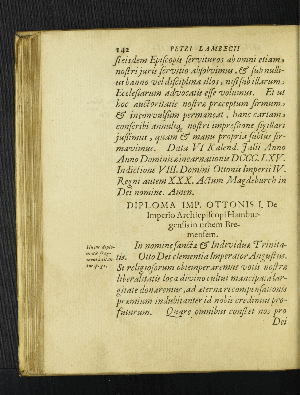 142 PETRI LAMBECII
steisdem Episcopis servituros ab omni etiam,
nostri juris servitio absolvimus, & sub nulli-
us banno vel disciplina illos, nisi sub illarum
Ecclesiarum advocatis esse volumus. Et ut
hoc auctoritatis nostræ præceptum firmum,
& inconvulsum permaneat, hanc cartam,
conscribi annulíq, nostri impressione sigillari
jussimus, quam & manu propria subtus fir-
mavimus. Data VI Kalend. Julii Anno
Anno Dominicæ incarnationis DCCCC.LXV.
Indictione VIII. Domini Ottonis Imperii IV.
Regni autem XXX. Actum Magdeburch in
Dei nomine. Amen.
DIPLOMA IMP. OTTONIS I. De
Imperio Archiepiscopi Hambur-
gensis in urbem Bre-
mensem.
In nomine sanctæ & Individuæ Trinita-
tis. Otto Dei clementia Imperator Augustus.
Si religiosorum obtemperaremus votis nostra
liberalitate loca divino cultui mancipata lar-
gitate donaremus, ad æterna recompensationis
præmium indubitanter id nobis credimus pro-
futurum. Quare omnibus constet nos pro
Dei